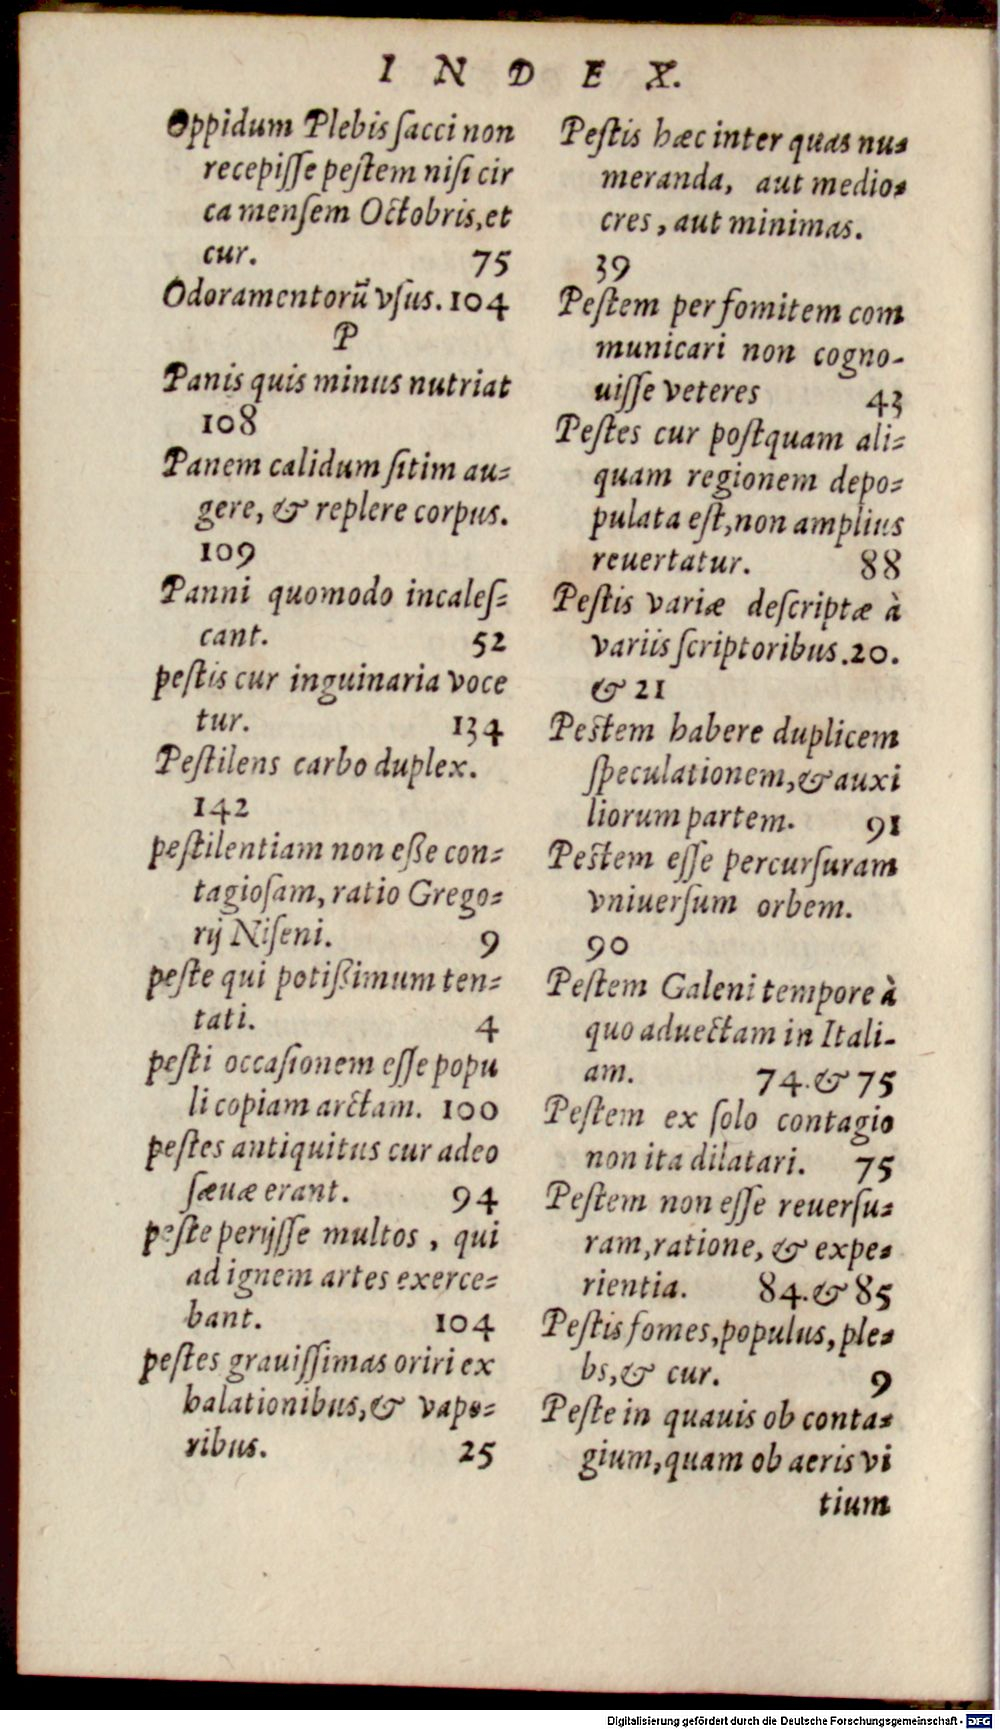 INDEX.
Oppidum Plebis ſacci non
recepiſſe peſtem niſi cir
ca menſem Octobris, et
cur. 75
Odoramentorũ vſus. 104
P
Panis quis minus nutriat
108
Panem calidum ſitim au=
gere, & replere corpus.
109
Panni quomodo incaleſ=
cant. 52
peſtis cur inguinaria voce
tur. 134
Peſtilens carbo duplex.
142
peſtilentiam non eße con=
tagioſam, ratio Grego=
rij Niſeni. 9
peſte qui potißimum ten=
tati. 4
peſti occaſionem eſſe popu
li copiam arctam. 100
peſtes antiquitus cur adeo
ſæuæ erant. 94
peſte perijſſe multos, qui
ad ignem artes exerce=
bant. 104
peſtes grauiſſimas oriri ex
halationibus, & vapo=
ribus. 25
Peſtis hæc inter quas nu=
meranda, aut medio=
cres, aut minimas.
39
Peſtem per fomitem com
municari non cogno-
uiſſe veteres 43
Peſtes cur poſtquam ali=
quam regionem depo=
pulata eſt, non amplius
reuertatur. 88
Peſtis variæ deſcriptæ à
variis ſcriptoribus. 20.
& 21
Peſtem habere duplicem
ſpeculationem, & auxi
liorum partem. 91
Peſtem eſſe percurſuram
vniuerſum orbem.
90
Peſtem Galeni tempore à
quo aduectam in Itali-
am. 74. & 75
Peſtem ex ſolo contagio
non ita dilatari. 75
Peſtem non eſſe reuerſu=
ram, ratione, & expe=
rientia. 84. & 85
Peſtis fomes, populus, ple=
bs, & cur. 9
Peſte in quauis ob conta=
gium, quam ob aeris vi
tium
Digitalisierung gefördert durch die Deutsche Forschungsgemeinschaft - DFG